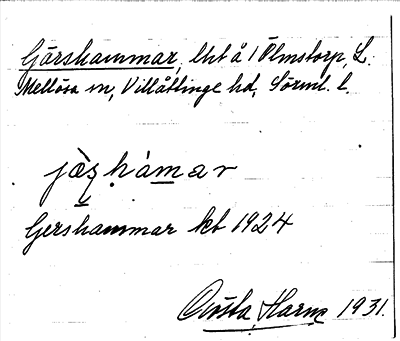 Gärshammar, lht å 1 Ölmstorp, L.
Mellösa sn, Villåttinge hd, Sörml. l.
jæ̀ʂhámar
Gershammar kb 1924
Gösta Harms 1931.